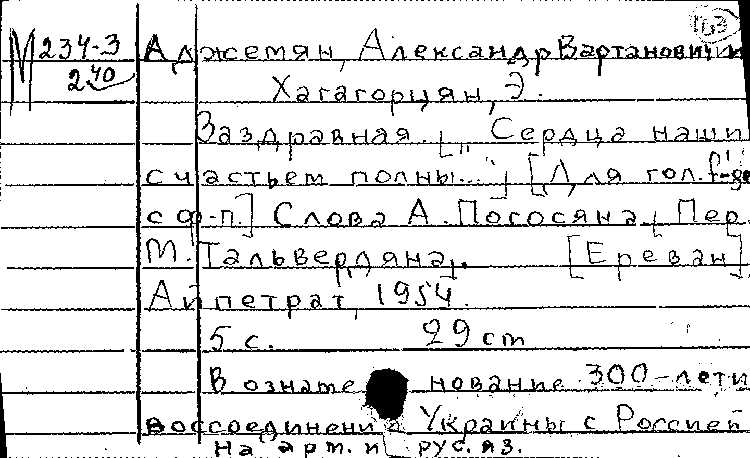 163
М 234-3 Аджемян, Александр Вартанович и
240 Хагагорцян, Э.
Заздравная. [„Сердца наши
счастьем полны..."] [Для гол. f'-ge''
с ф-п.] Слова А. Погосяна [Пер.
М. Тальвердяна]. [Ереван],
Айпетрат, 1954.
5 с. 29 cm
В ознаме нование 300-лети
воссоединени Украины с Россией
На арм. и рус. яз.